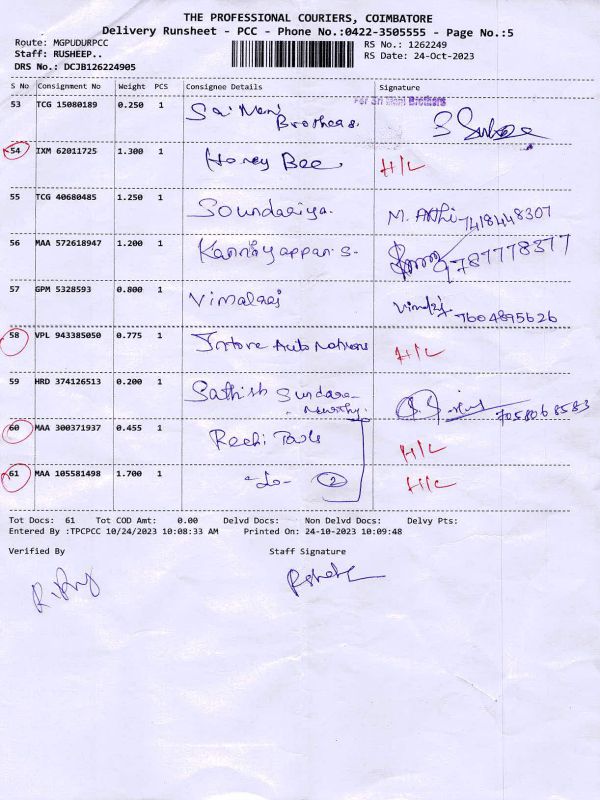 THE PROFESSIONAL COURIERS, COIMBATORE
Delivery Runsheet - PCC - Phone No.:0422-3505555 - Page No.:5
Route: MGPUDURPCC RS No.: 1262249
Staff: RUSHEEP.. RS Date: 24-Oct-2023
DRS No.: DCJB126224905
S No Consignment No Weight PCS Consignee Details Signature
53 TCG 15080189 0.250 1 Sai Mani For Sri Mani Brothers
Brothers.
54 IXM 62011725 1.300 1 Honey Bee H/L
55 TCG 40680485 1.250 1 Soundariya. M. Arthi 7418448307
56 MAA 572618947 1.200 1 Kannayappan s. 9787778377
57 GPM 5328593 0.800 1 Vimalraj Vimalraj 7604895626
58 VPL 943385050 0.775 1 H/L
59 HRD 374126513 0.200 1 Sathish Sundara- 7058068583
60 MAA 300371937 0.455 1 H/L
61 MAA 105581498 1.700 1 -do- 2 H/L
Tot Docs: 61 Tot COD Amt: 0.00 Delvd Docs: Non Delvd Docs: Delvy Pts:
Entered By :TPCPCC 10/24/2023 10:08:33 AM Printed On: 24-10-2023 10:09:48
Verified By Staff Signature